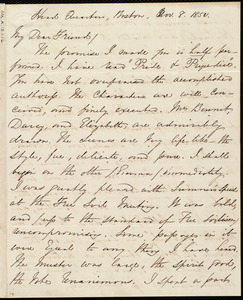 Head Quarters, Boston, Nov 8. 1850.
My Dear Friend,
The promise I made you is half per-
formed. I have read Pride & Prejudice.
You have not overpraised the accomplished
authoress. The Characters are well con-
ceived, and finely executed. Mr Bennet,
Darcy, and Elizabeth are admirably
drawn. The scenes are very life-like - the
style, free, delicate, and pure. I shall
begin on the other (Emma) immediately.
I was greatly pleased with Sumner's speech
at the Free Soil Meeting. It was bold,
and up to the standard of Free Soilism,
uncompromising. Some passages in it
were equal to any thing I have heard.
The muster was large, the spirit good,
the votes Unanimous. I spent a part